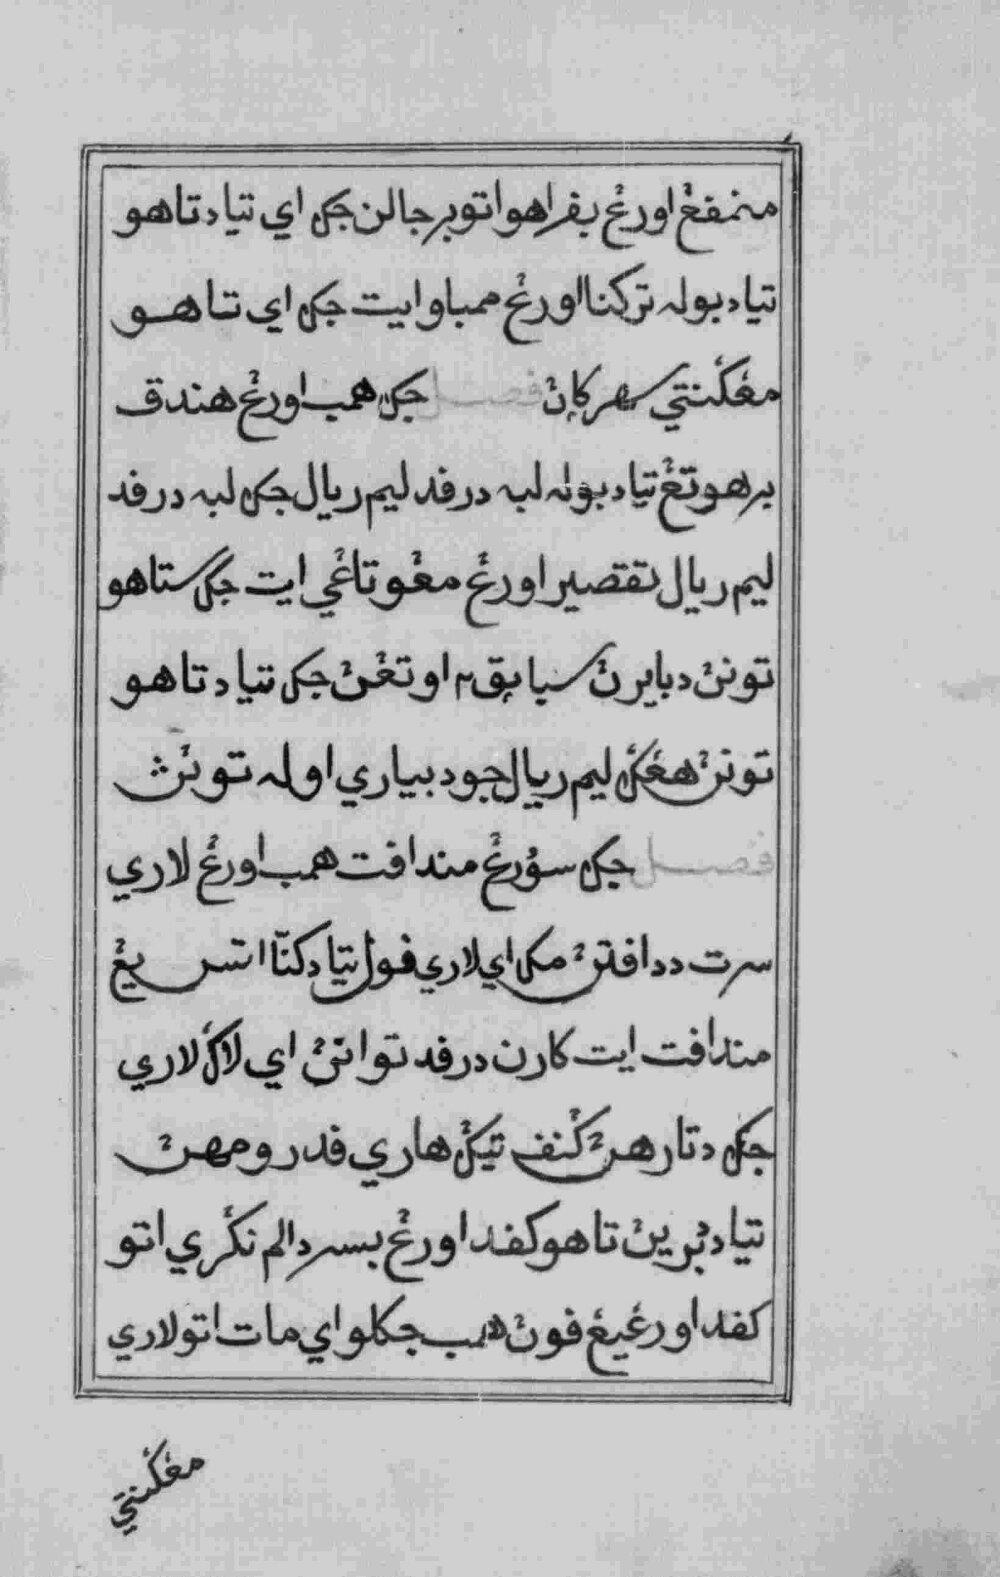 منمڤغ اورڠ بڤراهو اتو برجالن جک اي تياد تاهو
تياد بوله ترکنا اورڠ ممباو ايت جک اي تاهو
مڠݢنتي سهرکان فصل جک همب اورڠ هندق
برهوتڠ تياد بوله لبه درڤد ليم ريال جک لبه درڤد
ليم ريال تقصير اورڠ مڠوتاڠي ايت جک ستاهو
توانڽ دبايرڽ سباݢي٢ اوتڠڽ جک تياد تاهو
توانڽ هڠݢ ليم ريال جو دبياري اوله توانڽ
فصل جک سؤرڠ منداڤت همب اورڠ لاري
سرت دداڤتڽ مک اي لاري ڤول تياد کنا اتس يڠ
منداڤت ايت کارن درڤد توانڽ اي لاݢ لاري
جک دتارهڽ ݢنڤ تيݢ هاري ڤد رومهڽ
تياد دبرينڽ تاهو کڤد اورڠ بسر دالم نݢري اتو
کڤد اورڠ يڠ ڤوڽ همب جکلو اي مات اتو لاري
مڠݢنتي